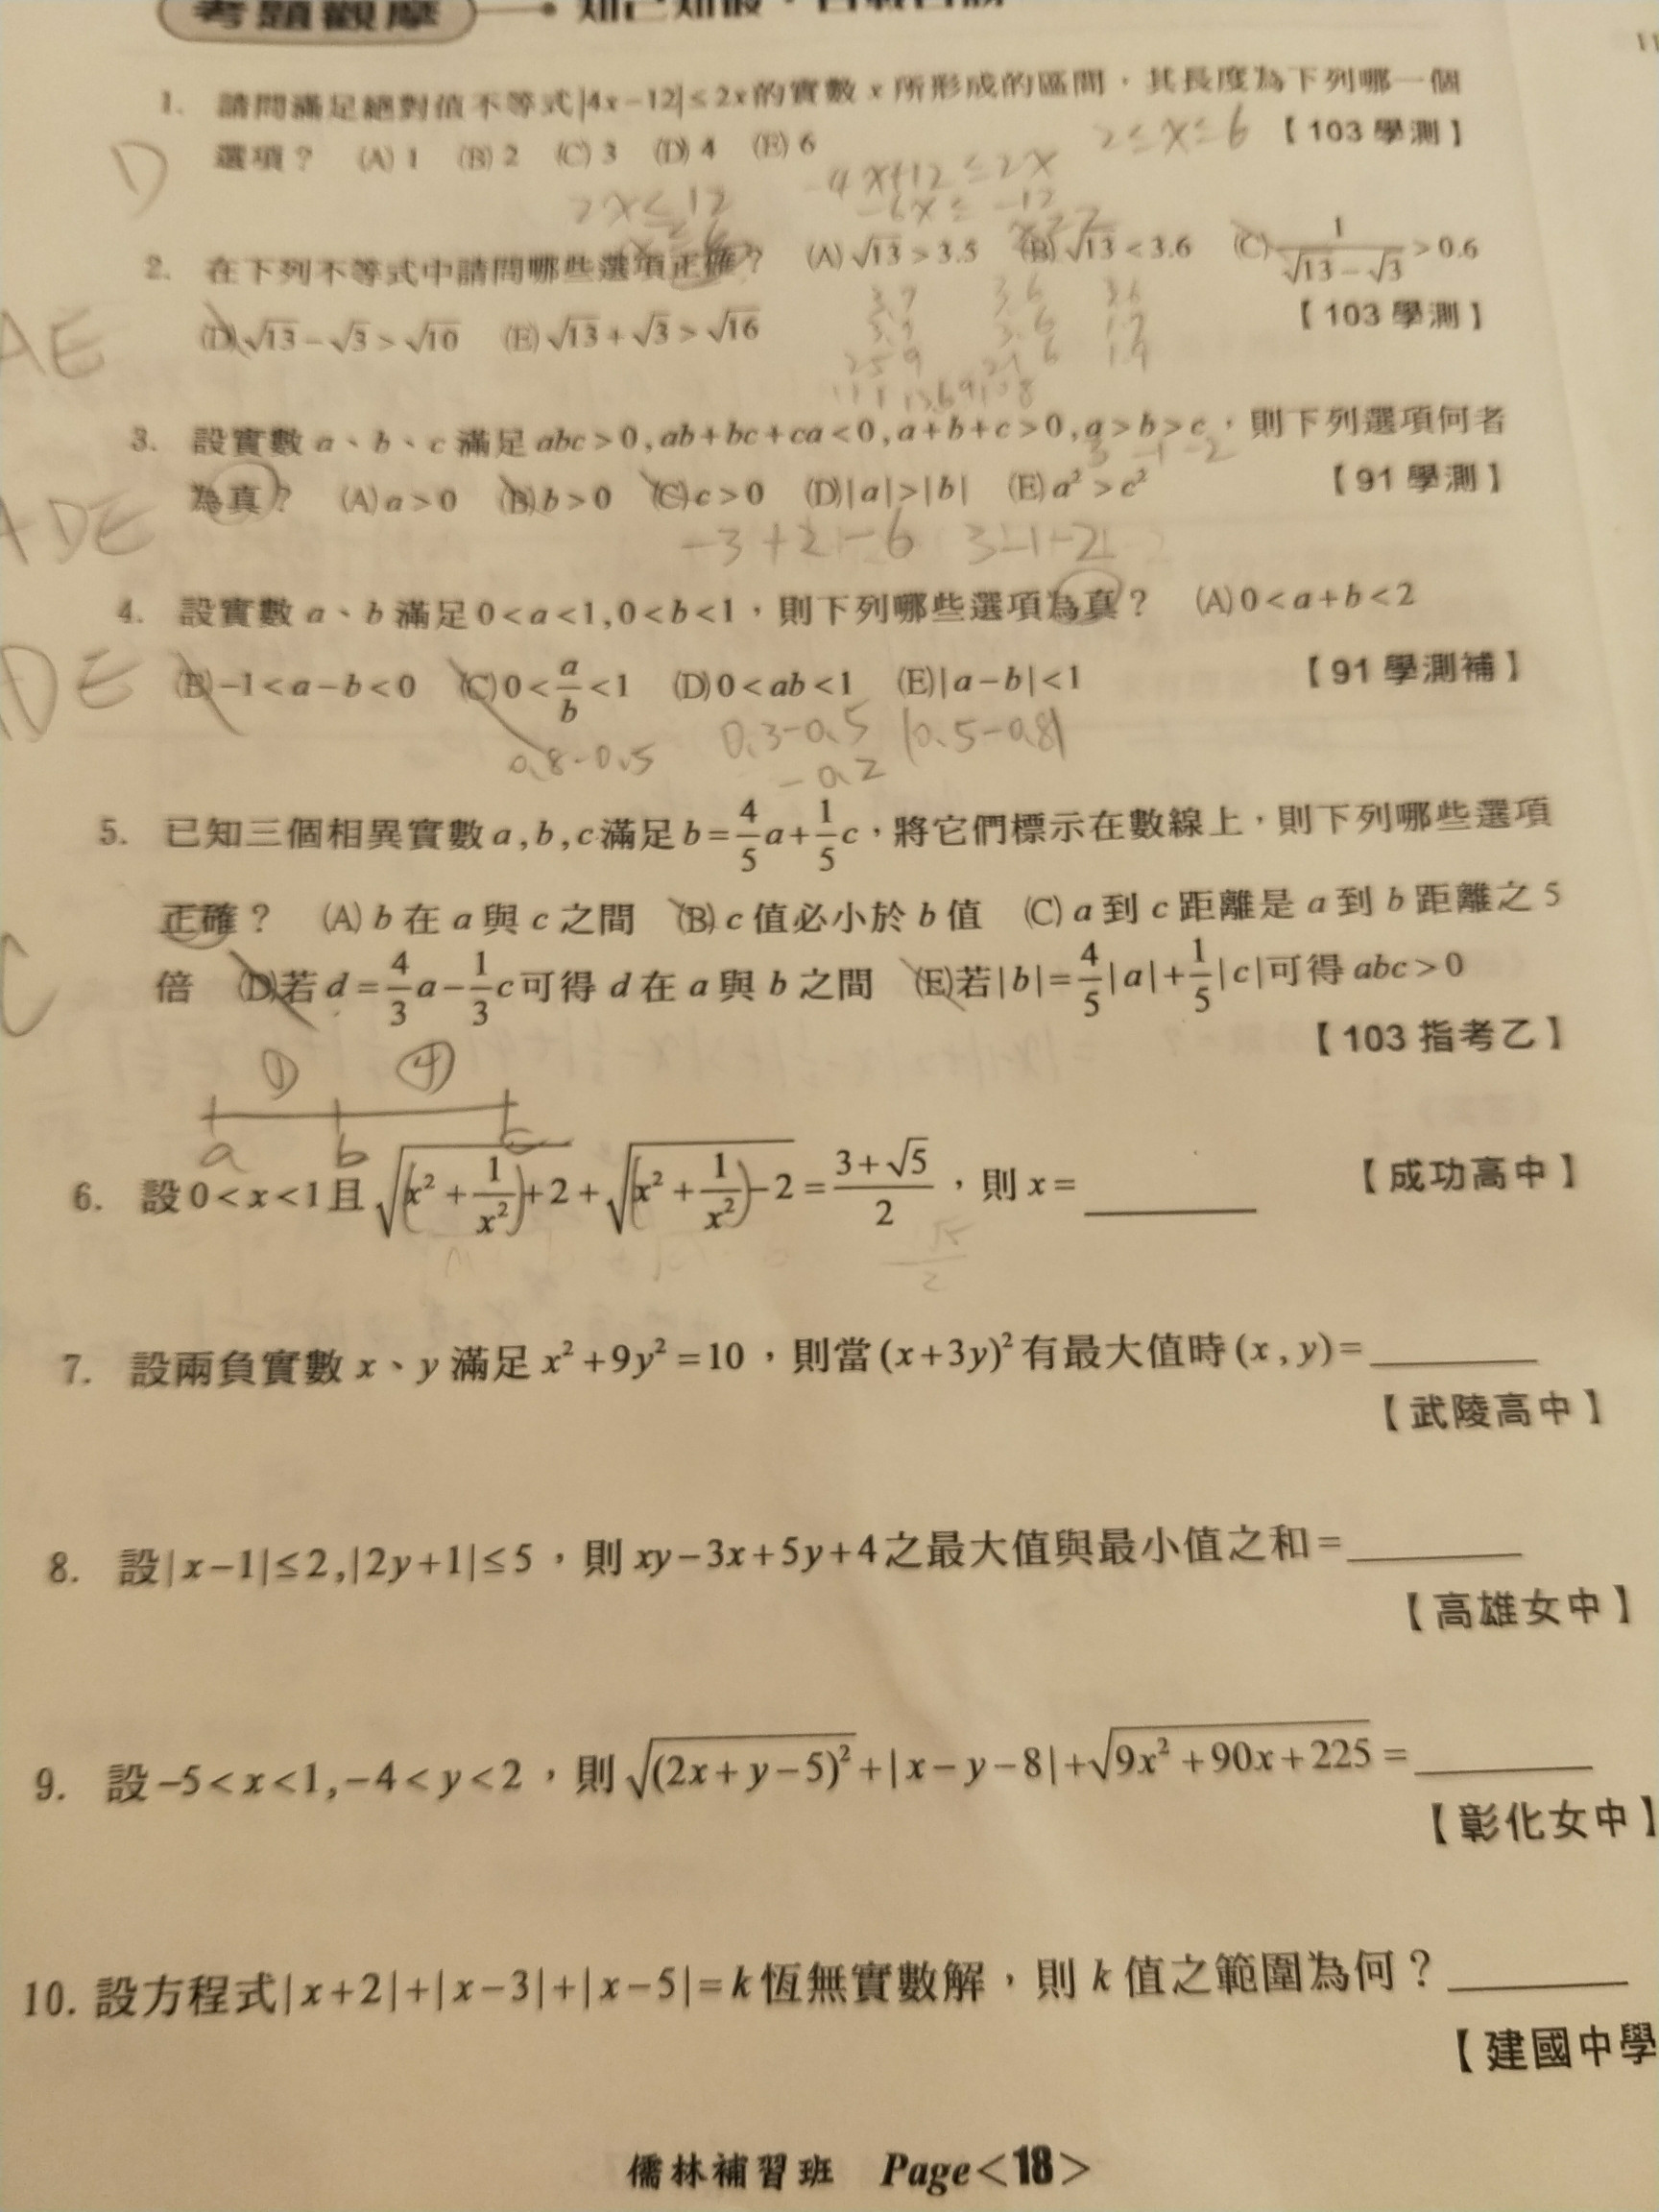 考題觀摩
1. 請問滿足絕對值不等式|4x−12|≤2x的實數 x 所形成的區間，其長度為下列哪一個
選項？ (A) 1 (B) 2 (C) 3 (D) 4 (E) 6 【103 學測】
2≤x≤6
D
-4x+12≤2x
2x≤12
-6x≤-12
2. 在下列不等式中請問哪些選項正確？ (A)√13>3.5 (B)√13<3.6 (C) 1/(√13−√3)>0.6
(D)√13−√3>√10 (E)√13+√3>√16 【103 學測】
AE
3. 設實數 a、b、c 滿足 abc>0,ab+bc+ca<0,a+b+c>0,a>b>c，則下列選項何者
3 -1 -2
為真？ (A)a>0 (B)b>0 (C)c>0 (D)|a|>|b| (E)a²>c² 【91 學測】
ADE
-3+2-6 3-1-2
4. 設實數 a、b 滿足0<a<1,0<b<1，則下列哪些選項為真？ (A)0<a+b<2
(B)−1<a−b<0 (C)0<a/b<1 (D)0<ab<1 (E)|a−b|<1 【91 學測補】
DE
0.8-0.5 0.3-0.5 |0.5-0.8|
-0.2
5. 已知三個相異實數a,b,c滿足b=4/5a+1/5c，將它們標示在數線上，則下列哪些選項
正確？ (A) b 在 a 與 c 之間 (B) c 值必小於 b 值 (C) a 到 c 距離是 a 到 b 距離之 5
倍 (D)若d=4/3a−1/3c可得 d 在 a 與 b 之間 (E)若|b|=4/5|a|+1/5|c|可得 abc>0
C
【103 指考乙】
① ④
a b c
6. 設0<x<1且√((x²+1/x²)+2)+√((x²+1/x²)−2)=(3+√5)/2，則 x=______ 【成功高中】
7. 設兩負實數 x、y 滿足 x²+9y²=10，則當(x+3y)²有最大值時(x,y)=______
【武陵高中】
8. 設|x−1|≤2,|2y+1|≤5，則 xy−3x+5y+4之最大值與最小值之和=______
【高雄女中】
9. 設−5<x<1,−4<y<2，則√((2x+y−5)²)+|x−y−8|+√(9x²+90x+225)=______
【彰化女中】
10. 設方程式|x+2|+|x−3|+|x−5|=k恆無實數解，則 k 值之範圍為何？______
【建國中學
儒林補習班 Page<18>